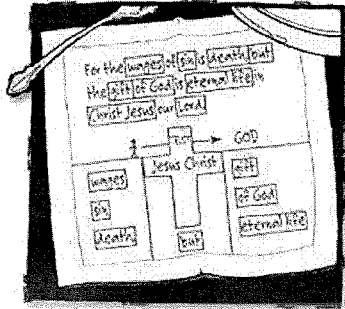 For the wages of sin is death, but
the gift of God is eternal life in
Christ Jesus our Lord.
GOD
Jesus Christ
wages
sin
death
but
gift
of God
eternal life